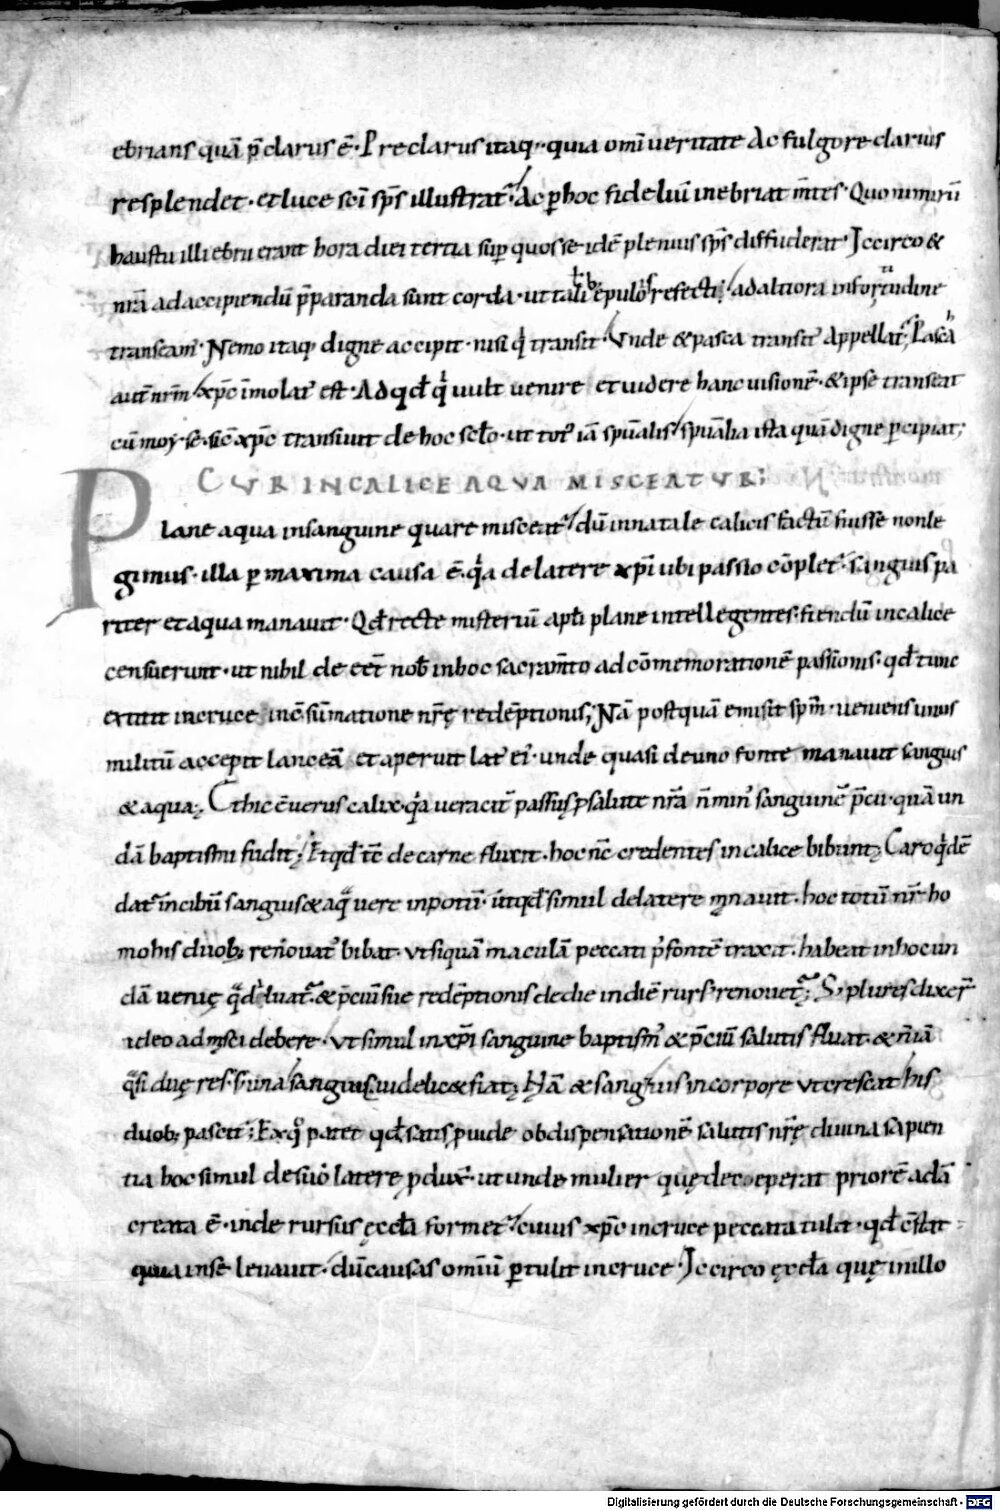 ebrians quā p̄clarus ē. Preclarus itaq; quia omī ueritate Ac fulgore clarius
resplendet. et luce scī sp̄s illustrat᷑. Ac ꝑ hoc fideliū inebriat m̄tes. Quo nimirū
haustu illi ebrii erant hora diei tertia sup quos se idē plenius sp̄s diffuderat. Iccirco &
nr̄a ad accipiendū p̄paranda sunt corda. ut talib; epulis refecti; ad altiora in fortitudine
transeam᷒. Nemo itaq; digne accipit. nisi qͥ transit. Unde & pasca transit᷒ Appellat᷑; Pascā
aut̄ nr̄m xp̄c īmolat᷒ est. Ad qđ qͥ uult uenire et uidere hanc uisionē. & ipse transeat
cū moyse. sic̄ xp̄c transiuit de hoc sc̄lo. ut tot᷒ iā spūalis spūalia ista quā digne ꝑcipiat;
CUR IN CALICE AQUA MISCEATUR;
Plane aqua in sanguine quare misceat᷑ dū in natale calicis factū fuisse non le
gimus. illa ꝑ maxima causa ē. qͣa de latere xp̄i ubi passio cōplet᷑. sanguis pa
riter et aqua manauit. Qđ recte misteriū apłi plane intellegentes. fiendū in calice
censuerunt. ut nihil de eēt nob̄ in hoc sacram̄to ad cōmemorationē passionis. qđ tunc
extitit in cruce in c̄sūmatione nr̄ę redēptionis; Nā postquā emisit sp̄m. ueniens unus
militū accepit lanceā et aperuit lat᷒ ei᷒. unde quasi de uno fonte manauit sanguis
& aqua; Et hic ē uerus calix. qͣa ueracit̄ passus ꝓ salute nr̄a n̄ min᷒ sanguinē p̄cii. quā un
dā baptismi fudit; Et qđ tc̄ de carne fluxit. hoc nc̄ credentes in calice bibunt; Caro qͥdē
dat᷑ in cibū sanguis & aqͣ uere in potū. ut qđ simul de latere manauit. hoc totū nr̄ ho
mo his duob; renouat᷒ bibat. ut si quā maculā peccati p᷒ fontē traxit. habeat in hoc un
dā uenię qͣ diluat᷑. & p̄ciū suę redēptionis de die in diē rurs᷒ renouet᷑; S; plures dixer̄
ideo admisci debere. Ut simul in xp̄i sanguine baptism᷒ & p̄ciū salutis fluat. & n̄ iā
qͣsi duę res. s; una sanguis uidelic& fiat; Nā & sanguis in corpore ut crescat his
duob; pascit᷑; Ex qͦ patet qđ satis ꝓuide ob dispensationē salutis nr̄ę diuina sapien
tia hoc simul de suo latere ꝓdux̄. ut unde mulier quę deceperat priorē adā
creata ē. inde rursus ęccła formet᷑. cuius xp̄c in cruce peccata tulit. qđ c̄stat
quia in se leuauit. dū causas omniū ꝑtulit in cruce. Iccirco ęccła quę in illo
Digitalisierung gefördert durch die Deutsche Forschungsgemeinschaft - DFG